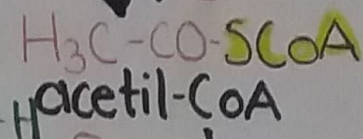 H₃C-CO-SCoA
acetil-CoA